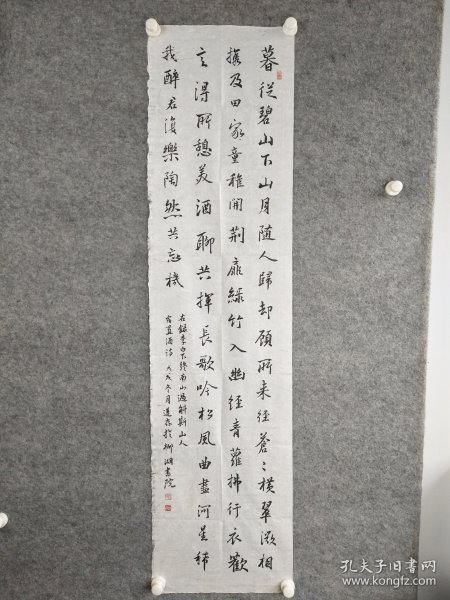 暮從碧山下山月隨人歸却顧所來徑蒼〻橫翠微相
携及田家童稚開荆扉綠竹入幽徑青蘿拂行衣歡
言得所憩美酒聊共揮長歌吟松風曲盡河星稀
我醉君復樂陶然共忘機
右録李白下終南山過斛斯山人
宿置酒诗 戊戌冬月道森於柳湖書院
孔夫子旧书网
www.kongfz.com